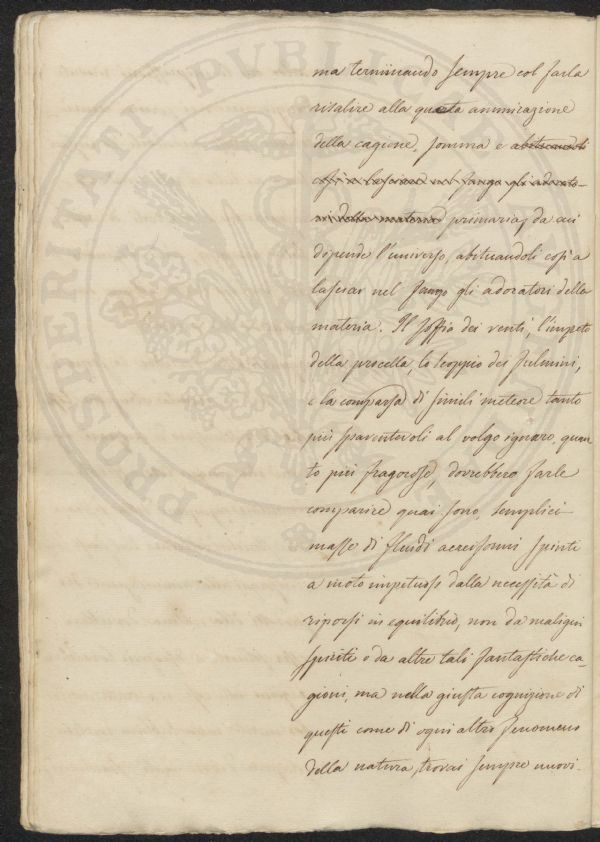 PROSPERITATI PUBLICAE
ma terminando sempre col farla
risalire alla questa ammirazione
della cagione, somma e abituandoli
così a lasciare nel fango gli adorato-
ri della materia primaria, da cui
dipende l'universo, abituandoli così a
lasciar nel fango gli adoratori della
materia. Il soffio dei venti, l'impeto
della procella, lo scoppio dei fulmini,
e la comparsa di simili meteore tanto
più spaventevoli al volgo ignaro, quan-
to più fragorose, dovrebbero farle
comparire quai sono, semplici
masse di fluidi aereiformi spinti
a moto impetuoso dalla necessità di
riporsi in equilibrio, non da maligni
spiriti o da altre tali fantastiche ca-
gioni, ma nella giusta cognizione di
questi come di ogni altro fenomeno
della natura, trovai sempre nuovi